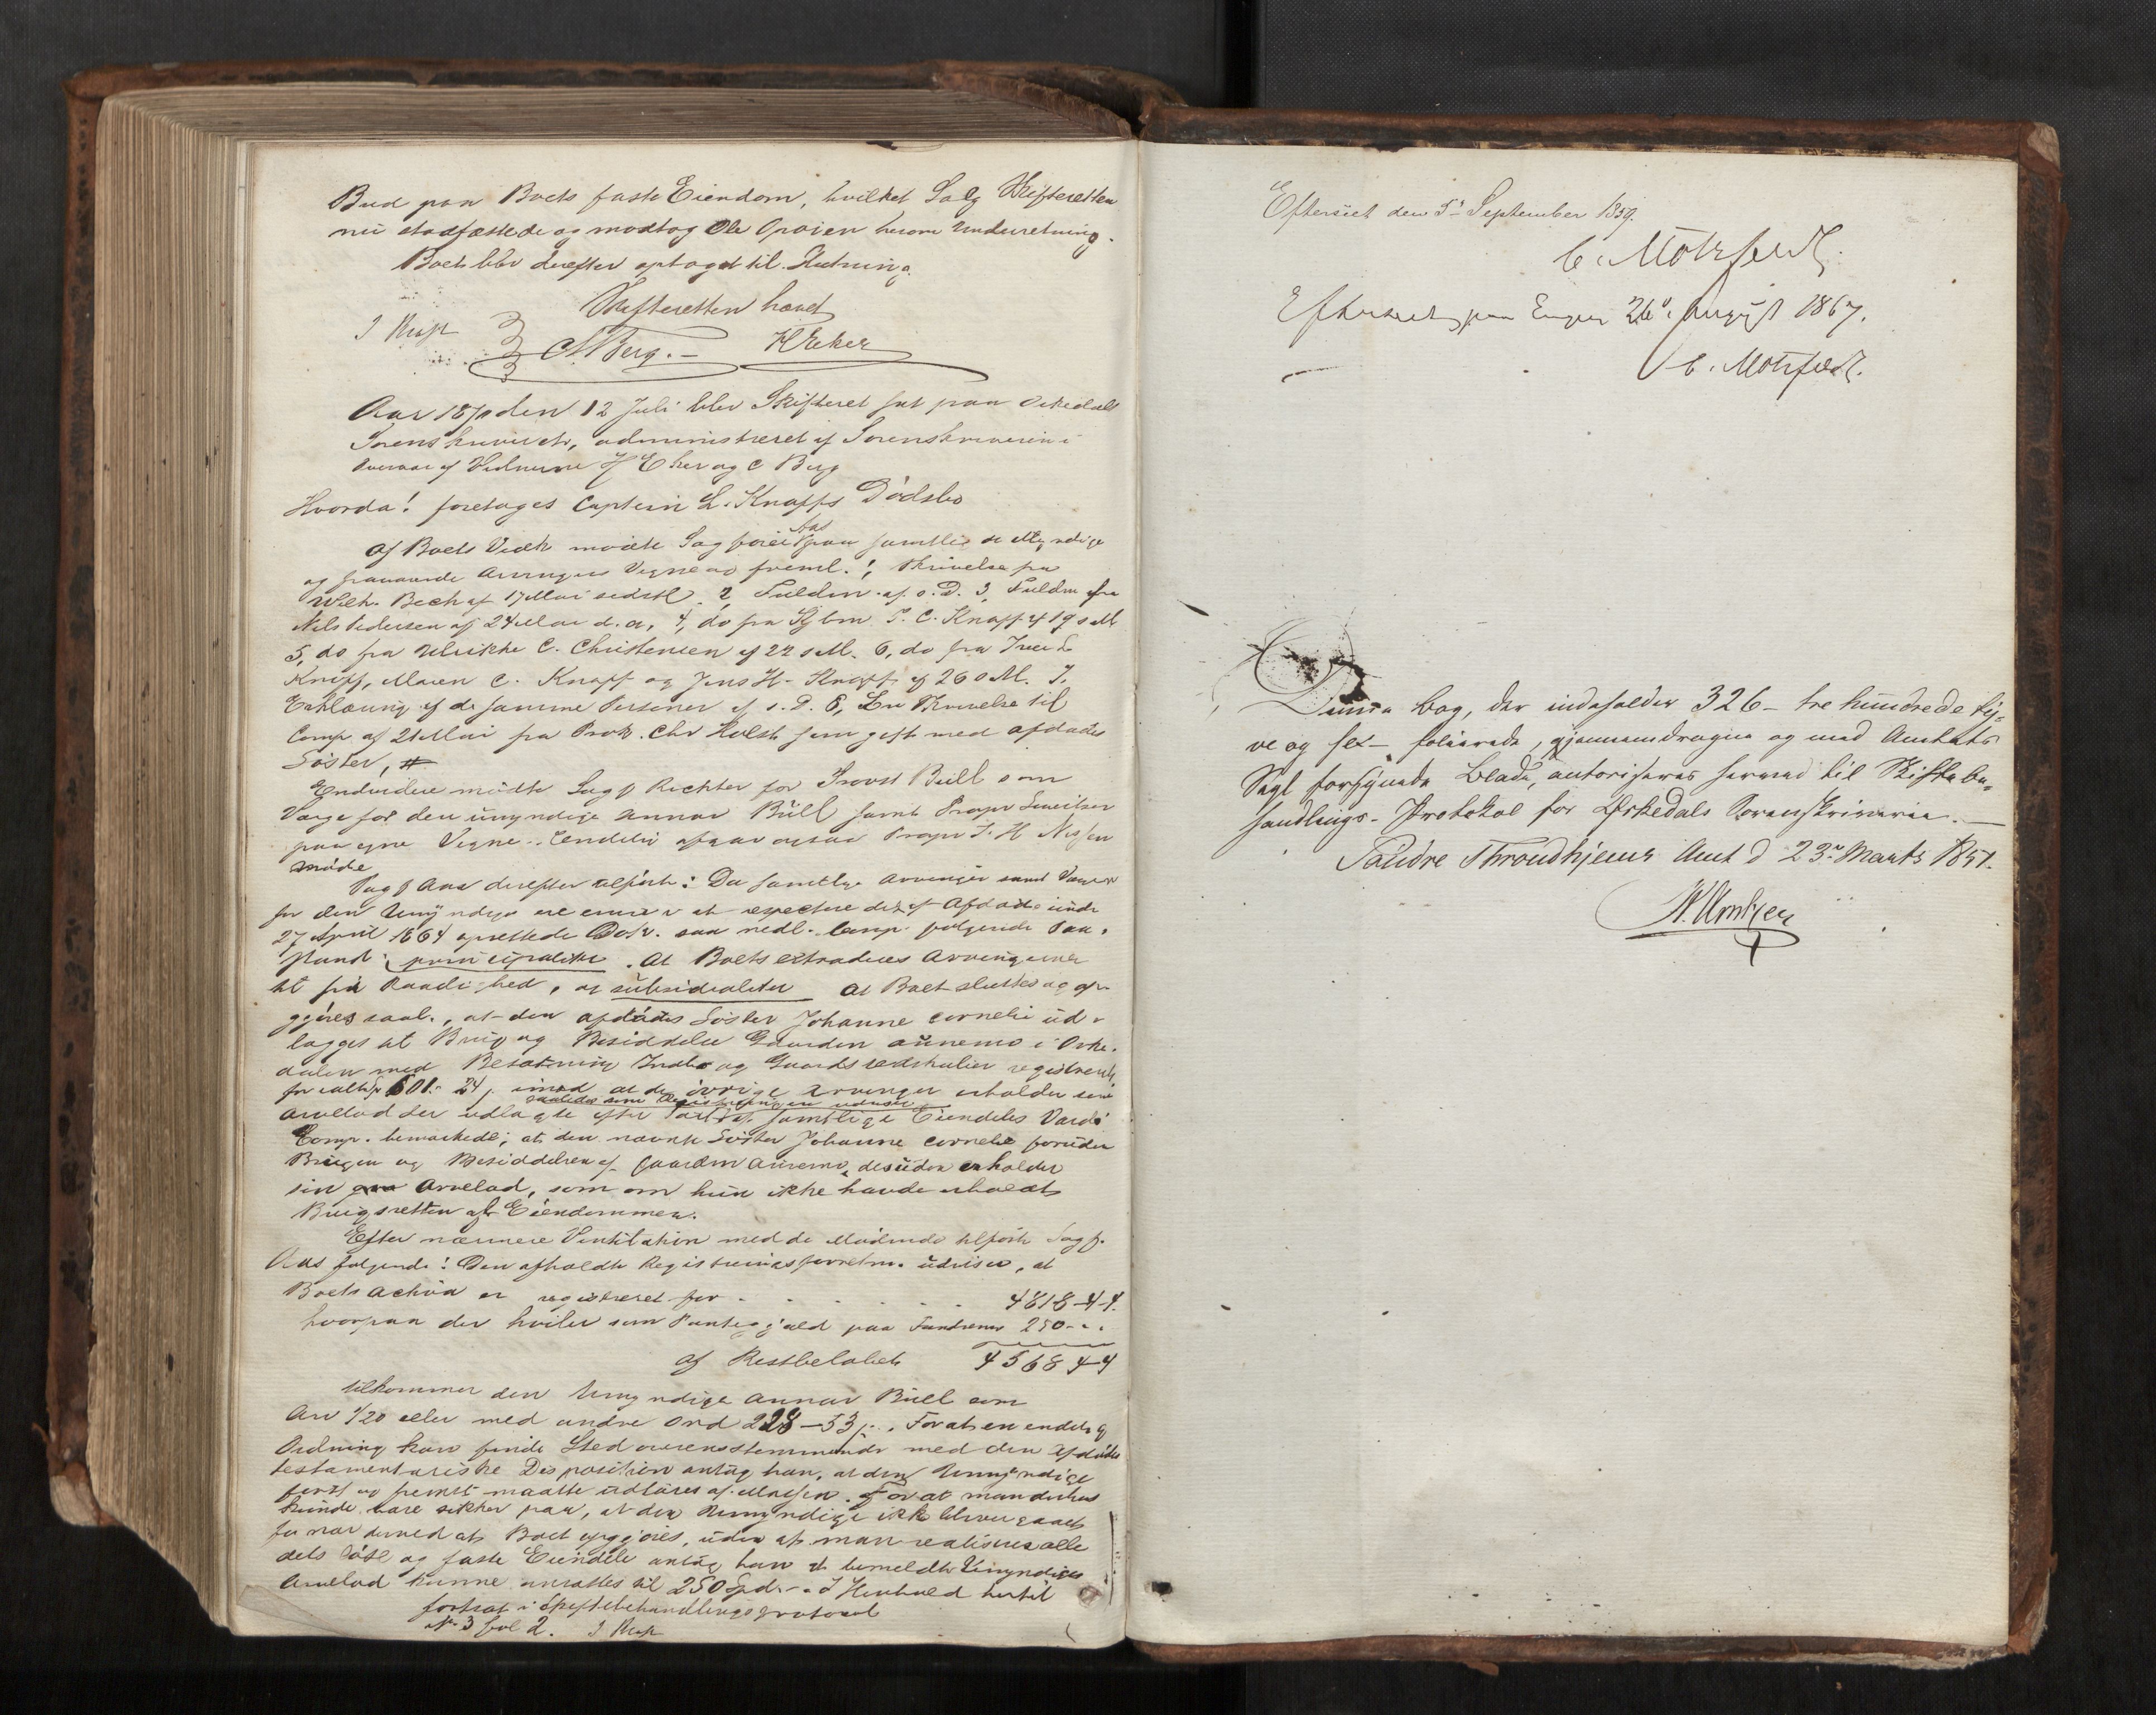 Bud paa Boets faste Eiendom, hvilket Salg Skifteretten
nu stadfæstede og modtog Ole Opoien herom Underretning.
Boet blev derefter optaget til Slutning.
Skifteretten hævet
J Knap CM Berg.- H Eeker
Aar 1870 den 12 Juli blev Skifteret sat paa Orkedals
Sorenskriveri, administreret af Sorenskriveren i
Overvær af Vidnerne H Eker og C Berg
Hvorda! foretoges Captein L. Knoffs Dödsbo
Af Boets Vedk mödte Sagförer Aas paa samtlige Myndige
og fraværende Arvingers Vegne og freml. 1, Skrivelse fra
Wilh. Bech af 17 Mai sidstl. 2, Fuldm. af s. D. 3, Fuldm fra
Nils Pedersen af 24 Mai d. a, 4, do fra Kjbm T. C. Knoff af 19 s M
5, do fra Ulrikke C. Christensen af 22 s M. 6, do fra
Knoff, Maren C. Knoff og Jens H. Knoff af 26 s M. 7,
Erklæring af de samme Personer af s. D. 8, En Skrivelse til
Comp. af 21 Mai fra Prok. Chr Holst som gift med afdödes
Söster,
Endvidere mödte Sagf Richter for Provst Büll som
Værge for den umyndige Annar Büll samt Propr Sweitzer
paa egne Vegne. Endelig afgav ogsaa Propr T. H Nissen
möde
Sagf Aas derefter tilförte: Da samtlige Arvinger samt Værgen
for den Umyndige ere enige i at respectere det af Afdöde under
27 April 1864 oprettede Testm. saa nedl. Comp. fölgende Paa-
stand: principaliter. At Boets extraderes Arvingerne
til fri Raadighed, og subsidialiter At Boet sluttes og op-
gjöres saal., at den afdödes Söster Johanne Cornelie ud-
lægges til Brug og Besiddelse Gaarden Aunemo i Orke-
dalen med Besætning Indbo og Gaardsredskaber registreret
for ialt Sp 601. 24 s, imod at de övrige Arvinger erholder sin
saaledes som Registreringen udviser
Arvelod der udlagte efter samtlige Eiendeles Værdi
Comp. bemærkede; at den nævnte Söster Johanne Cornelie foruden
Brugen og Besiddelsen af Gaarden Aunemo, desuden erholder
sin Arvelod, som om hun ikke havde erholdt
Brugsretten af Eiendommen.
Efter nærmere Ventilation med de Mödende tilförte Sagf.
Aas fölgende: Den afholdte Registreringsforretn. udviser, at
Boets Activa er registreret for . . . . . . 4818-44.
hvorpaa der hviler som Pantegjæld paa 250-..
af Restbelöbet 4568 44
tilkommer den Umyndige Annar Büll som
Arv 1/20 eller med andre Ord 228-53 s.. For at en endelig
Ordning kan finde Sted overensstemmende med den Afdödes
testamentariske Disposition antog han, at den Umyndige
först og fremst maatte udlöses af Massen. For at man derhos
kunde være sikker paa, at den Umyndige ikke bliver gaaet
for nær derved at Boet opgjöres, uden at man realiserer alle
dets löse og faste Eiendele antog han at bemeldte Umyndiges
Arvelod kunne ansættes til 250 Spd. - I Henhold hertil
fortsat i Skiftebehandlingsprotocol
No 3 fol 2. J Knap
Efterseet den 5te September 1859.
C. Motzfeldt.
Efterseet paa 26de August 1867.
C. Motzfeldt.
Denne Bog, der indeholder 326 - tre hundrede ty-
ve og sex - folierede, gjennemdragne og med Amtets
Segl forsynede Blade, autoriseres herved til Skiftebe-
handlings-Protokol for Örkedals Sorenskriverie.-
Söndre Throndhjems Amt d 23de Marts 1857.